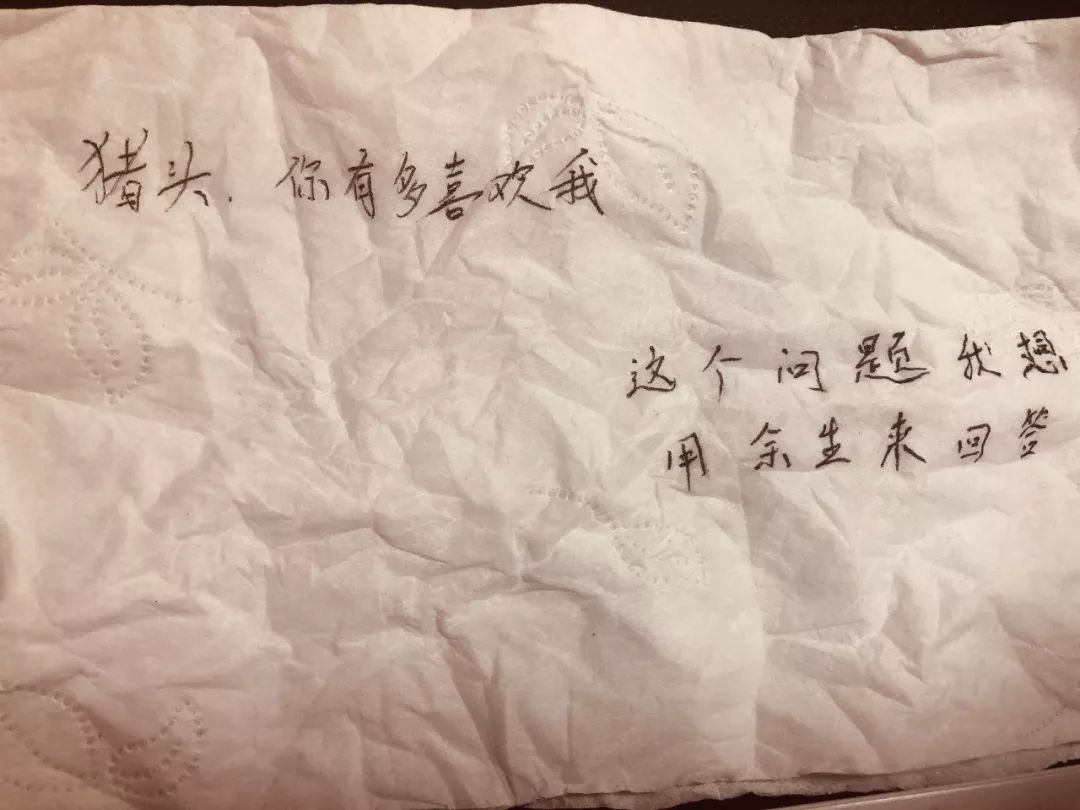 猪头.你有多喜欢我
这个问题我想
用余生来回答